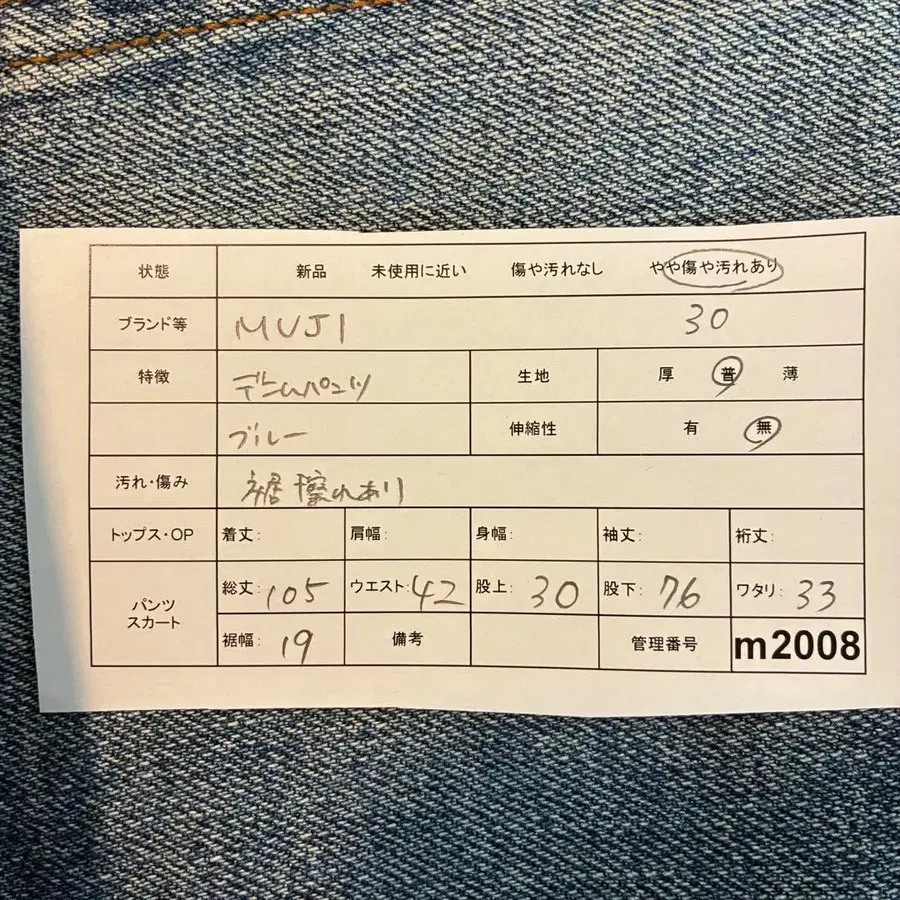 状態 新品 未使用に近い 傷や汚れなし やや傷や汚れあり
ブランド等 MUJI 30
特徴 デニムパンツ 生地 厚 普 薄
ブルー 伸縮性 有 無
汚れ・傷み 裾擦れあり
トップス・OP 着丈: 肩幅: 身幅: 袖丈: 裄丈:
パンツ
スカート
総丈: 105 ウエスト: 42 股上: 30 股下: 76 ワタリ: 33
裾幅: 19 備考 管理番号 m2008